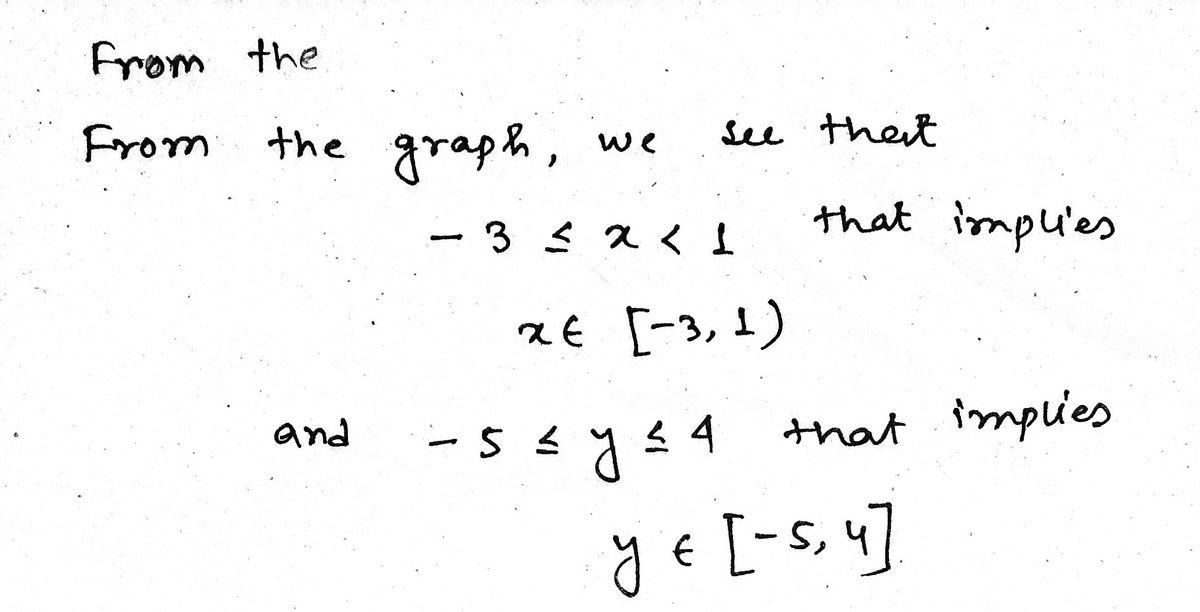 From the
From the graph, we see that
- 3 ≤ x < 1 that implies
x ∈ [-3, 1)
and - 5 ≤ y ≤ 4 that implies
y ∈ [-5, 4]